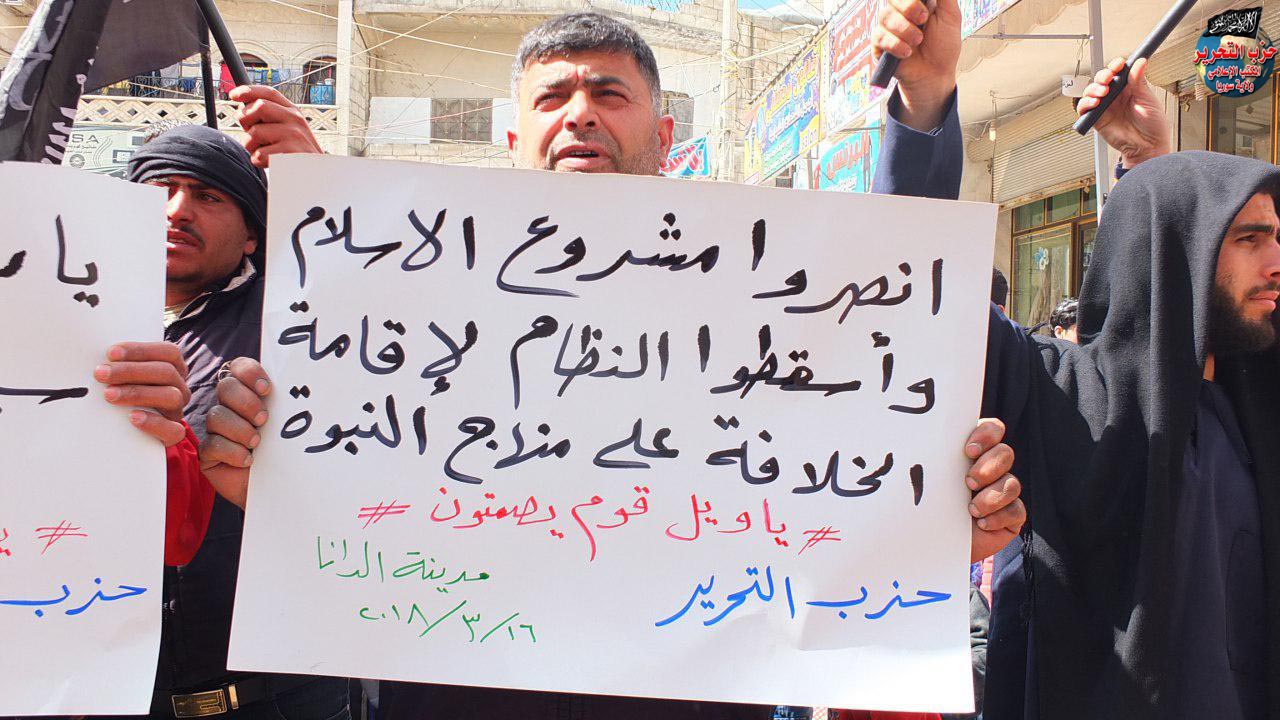 انصروا مشروع الاسلام
وأسقطوا النظام لإقامة
الخلافة على منهاج النبوة
# ياويل قوم يصمتون #
حزب التحرير
مدينة الدانا
٢٠١٨/٣/١٦
يا
#
حزب
حزب التحرير
المكتب الإعلامي
ولاية سوريا